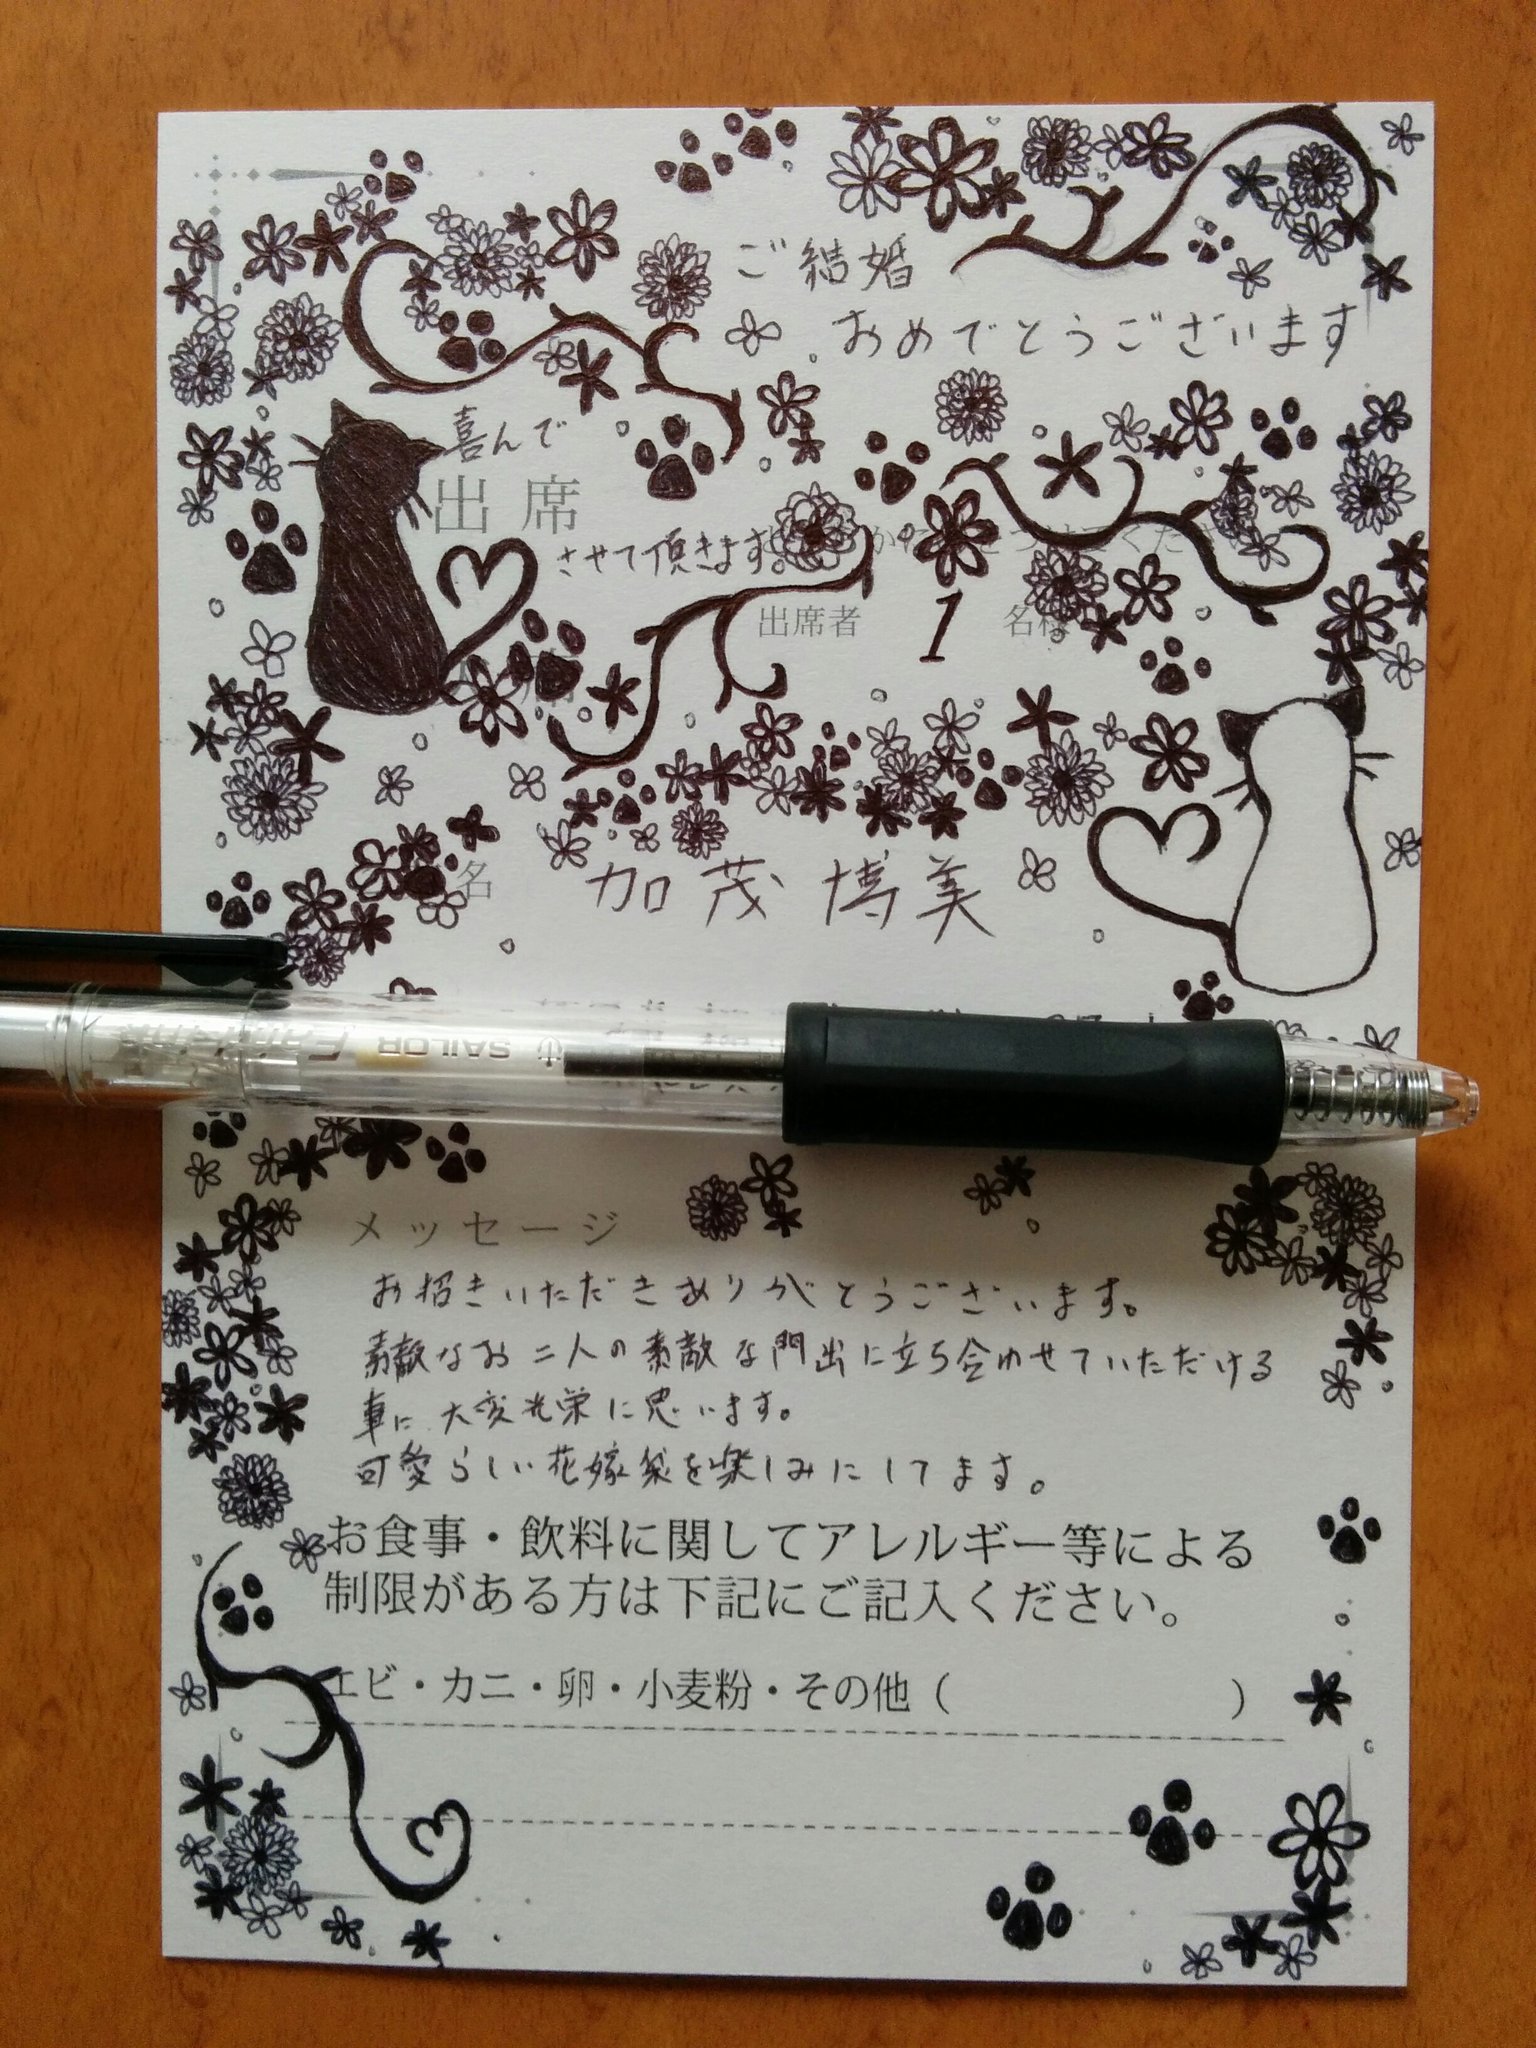 ご結婚
おめでとうございます
喜んで
出席
させて頂きます。
出席者 1 名様
名
加茂博美
SAILOR
メッセージ
お招きいただきありがとうございます。
素敵なお二人の素敵な門出に立ち合わせていただける
事に大変光栄に思います。
可愛らしい花嫁姿を楽しみにしてます。
お食事・飲料に関してアレルギー等による
制限がある方は下記にご記入ください。
エビ・カニ・卵・小麦粉・その他（ ）